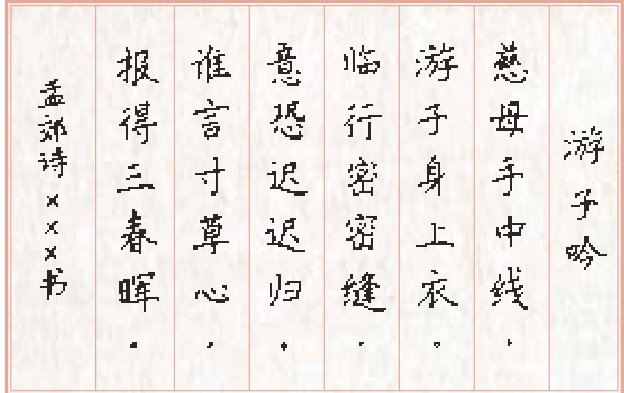 游子吟
慈母手中线,
游子身上衣。
临行密密缝,
意恐迟迟归。
谁言寸草心,
报得三春晖。
孟郊诗×××书